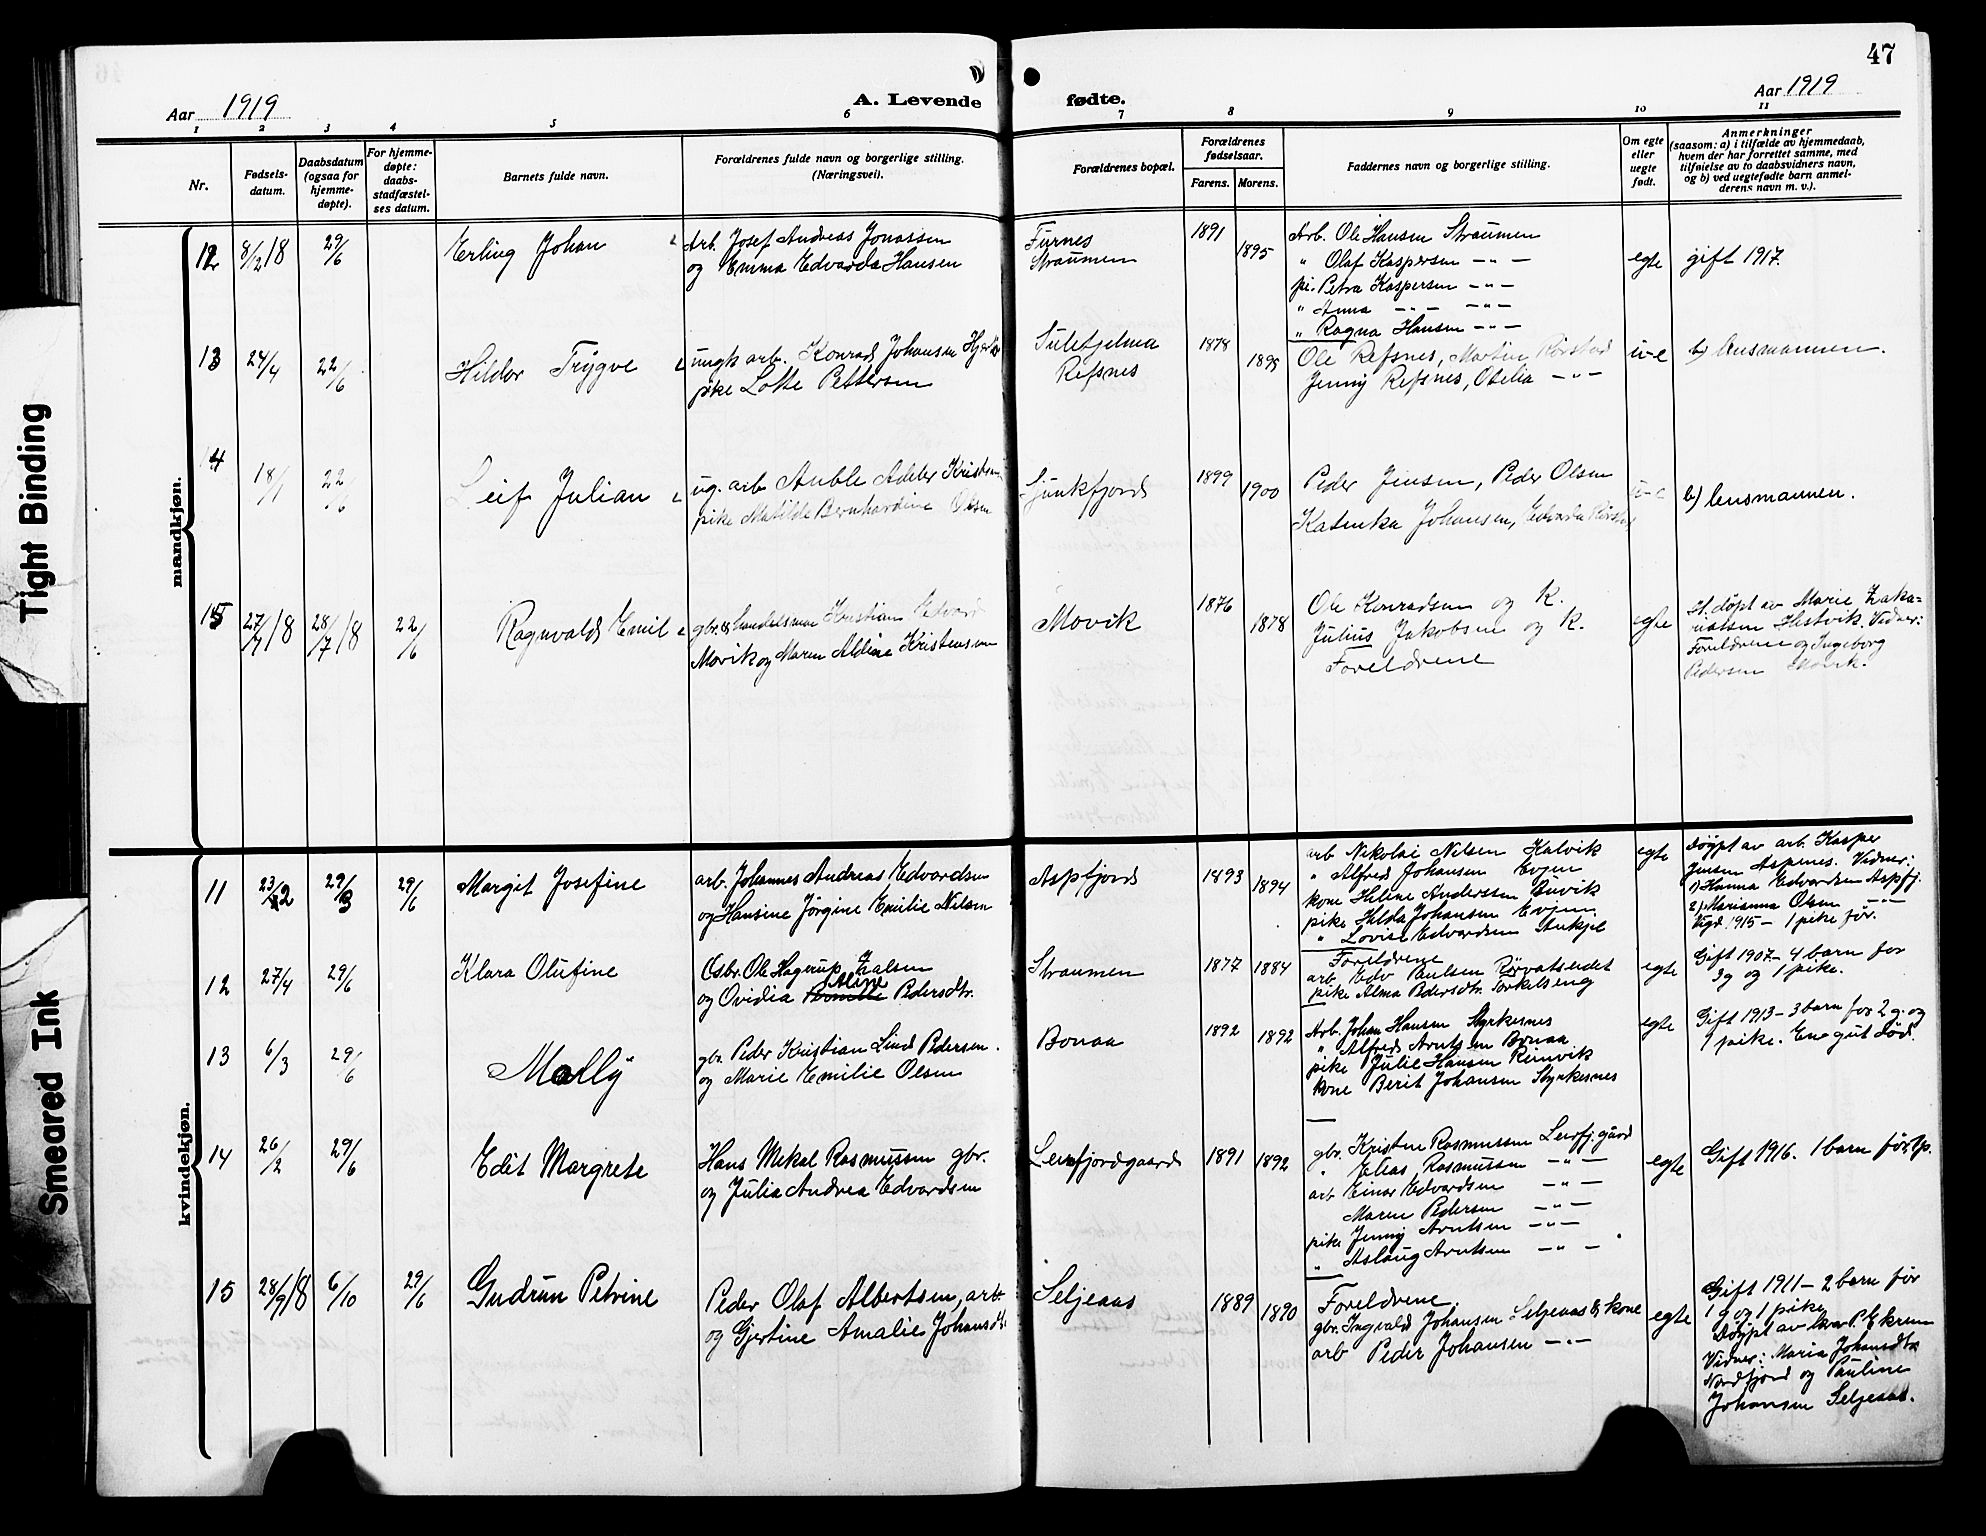 47
Aar 1919
A. Levende fødte.
Aar 1919
1 2 3 4 5 6 7 8 9 10 11
Nr.
Fødsels-
datum.
Daabsdatum
(ogsaa for
hjemme-
døpte).
For hjemme-
døpte:
daabs-
stadfæstel-
ses datum.
Barnets fulde navn.
Forældrenes fulde navn og borgerlige stilling.
(Næringsvei).
Forældrenes bopæl.
Forældrenes
fødselsaar.
Farens. Morens.
Faddernes navn og borgerlige stilling.
Om egte
eller
uegte
født.
Anmerkninger
(saasom: a) i tilfælde av hjemmedaab,
hvem der har forrettet samme, med
tilføielse av to daabsvidners navn,
og b) ved uegtefødte barn anmel-
derens navn m. v.).
mandkjøn.
12 8/12 18 29/6 Erling Johan
Arb. Josef Andreas Jonassen
og Emma Edvarda Hansen
Furnes
Straumen
1891 1895
Arb. Ole Hansen Straumen
" Olaf Kaspersen -"-
pi. Petra Kaspersen -"-
" Anna -"- -"-
" Ragna Hansen -"-
egte gift 1917.
13 24/4 22/6 Hildor Trygve
ungk. arb. Konrad Johansen
pike Lotte Pettersen
Sulitjelma
Refsnes
1878 1895
Ole Refsnes, Martin Rørstad
Jenny Refsnes, Otelia -"-
u-e b) lensmannen.
14 18/1 22/6 Leif Julian
ug. arb Adeler
pike Matilde Bernhardine Olsen
1899 1900
Peder Jensen, Peder Olsen
Katinka Johansen, Edvarda
u-e b) lensmannen.
15 27/7 18 28/7 18 22/6 Ragnvald Emil
gbr. & handelsman Kristian Edvard
Movik og Maren Aldine Kristensen
Movik
1876 1878
Ole Konradsen og K.
Julius Jakobsen og K.
Foreldrene
egte
H. døpt av Marie Zaka-
riassen Vidner:
Foreldrene og Ingeborg
Pedersen Movik.
kvindekjøn.
11 23/2 29/3 29/6 Margit Josefine
arb. Johannes Andreas Edvardsen
og Hansine Jørgine Emilie Nilsen
Aspfjord
1893 1894
arb Nikolai Nilsen Kalvik
" Alfred Johansen Evjen
kone Heline Anderssen
pike Hilda Johansen Evjen
" Lovise Edvardsen
egte
Døypt av arb. Kasper
Jensen Aspenes. Vidner:
1) Hanna Edvardsen Aspfj.
2) Marianna Olsen -"-
Vigd 1915 - 1 pike før.
12 27/4 29/6 Klara Olufine
Gbr. Ole Hagerup Zalsen
og Ovidia Aline Pedersdtr.
Straumen
1877 1884
Foreldrene
arb Edv Paulsen Rørvatseidet
pike Alma Pedersdtr. Torkelseng
egte
Gift 1907 - 4 barn før
3 g og 1 pike.
13 6/3 29/6 Molly
gbr. Peder Kristian Lind Pedersen.
og Marie Emilie Olsen
Bonaa
1892 1892
Arb. Johan Hansen Styrkesnes
" Alfred Arntsen Bonaa
pike Julie Hansen Reinvik
kone Berit Johansen Styrkesnes
egte
Gift 1913 - 3 barn før 2 g. og
1 pike. En gut død.
14 26/2 29/6 Edit Margrete
Hans Mekal Rasmussen gbr.
og Julia Andrea Edvardsen
Leirfjordgaard
1891 1892
gbr. Kristen Rasmussen Leirfj.gaard
" Elias Rasmussen -"-
arb Einar Edvardsen -"-
Maren Pedersen -"-
pike Jenny Arntsen -"-
" Aslaug Arntsen -"-
egte
Gift 1916. 1 barn før 1 p.
15 28/9 18 6/10 29/6 Gudrun Petrine
Peder Olaf Albertsen, arb
og Gjertine Amalie Johansdtr
Seljeaas
1889 1890
Foreldrene
gbr. Ingvald Johansen Seljeaas & kone
arb Peder Johansen -"-
egte
Gift 1911 - 2 barn før
1 g og 1 pike
Døypt av lærer P. Ekrem
Vidner: Maria Johansdtr.
Nordfjord og Pauline
Johansen Seljeaas.
Tight Binding
Smeared Ink